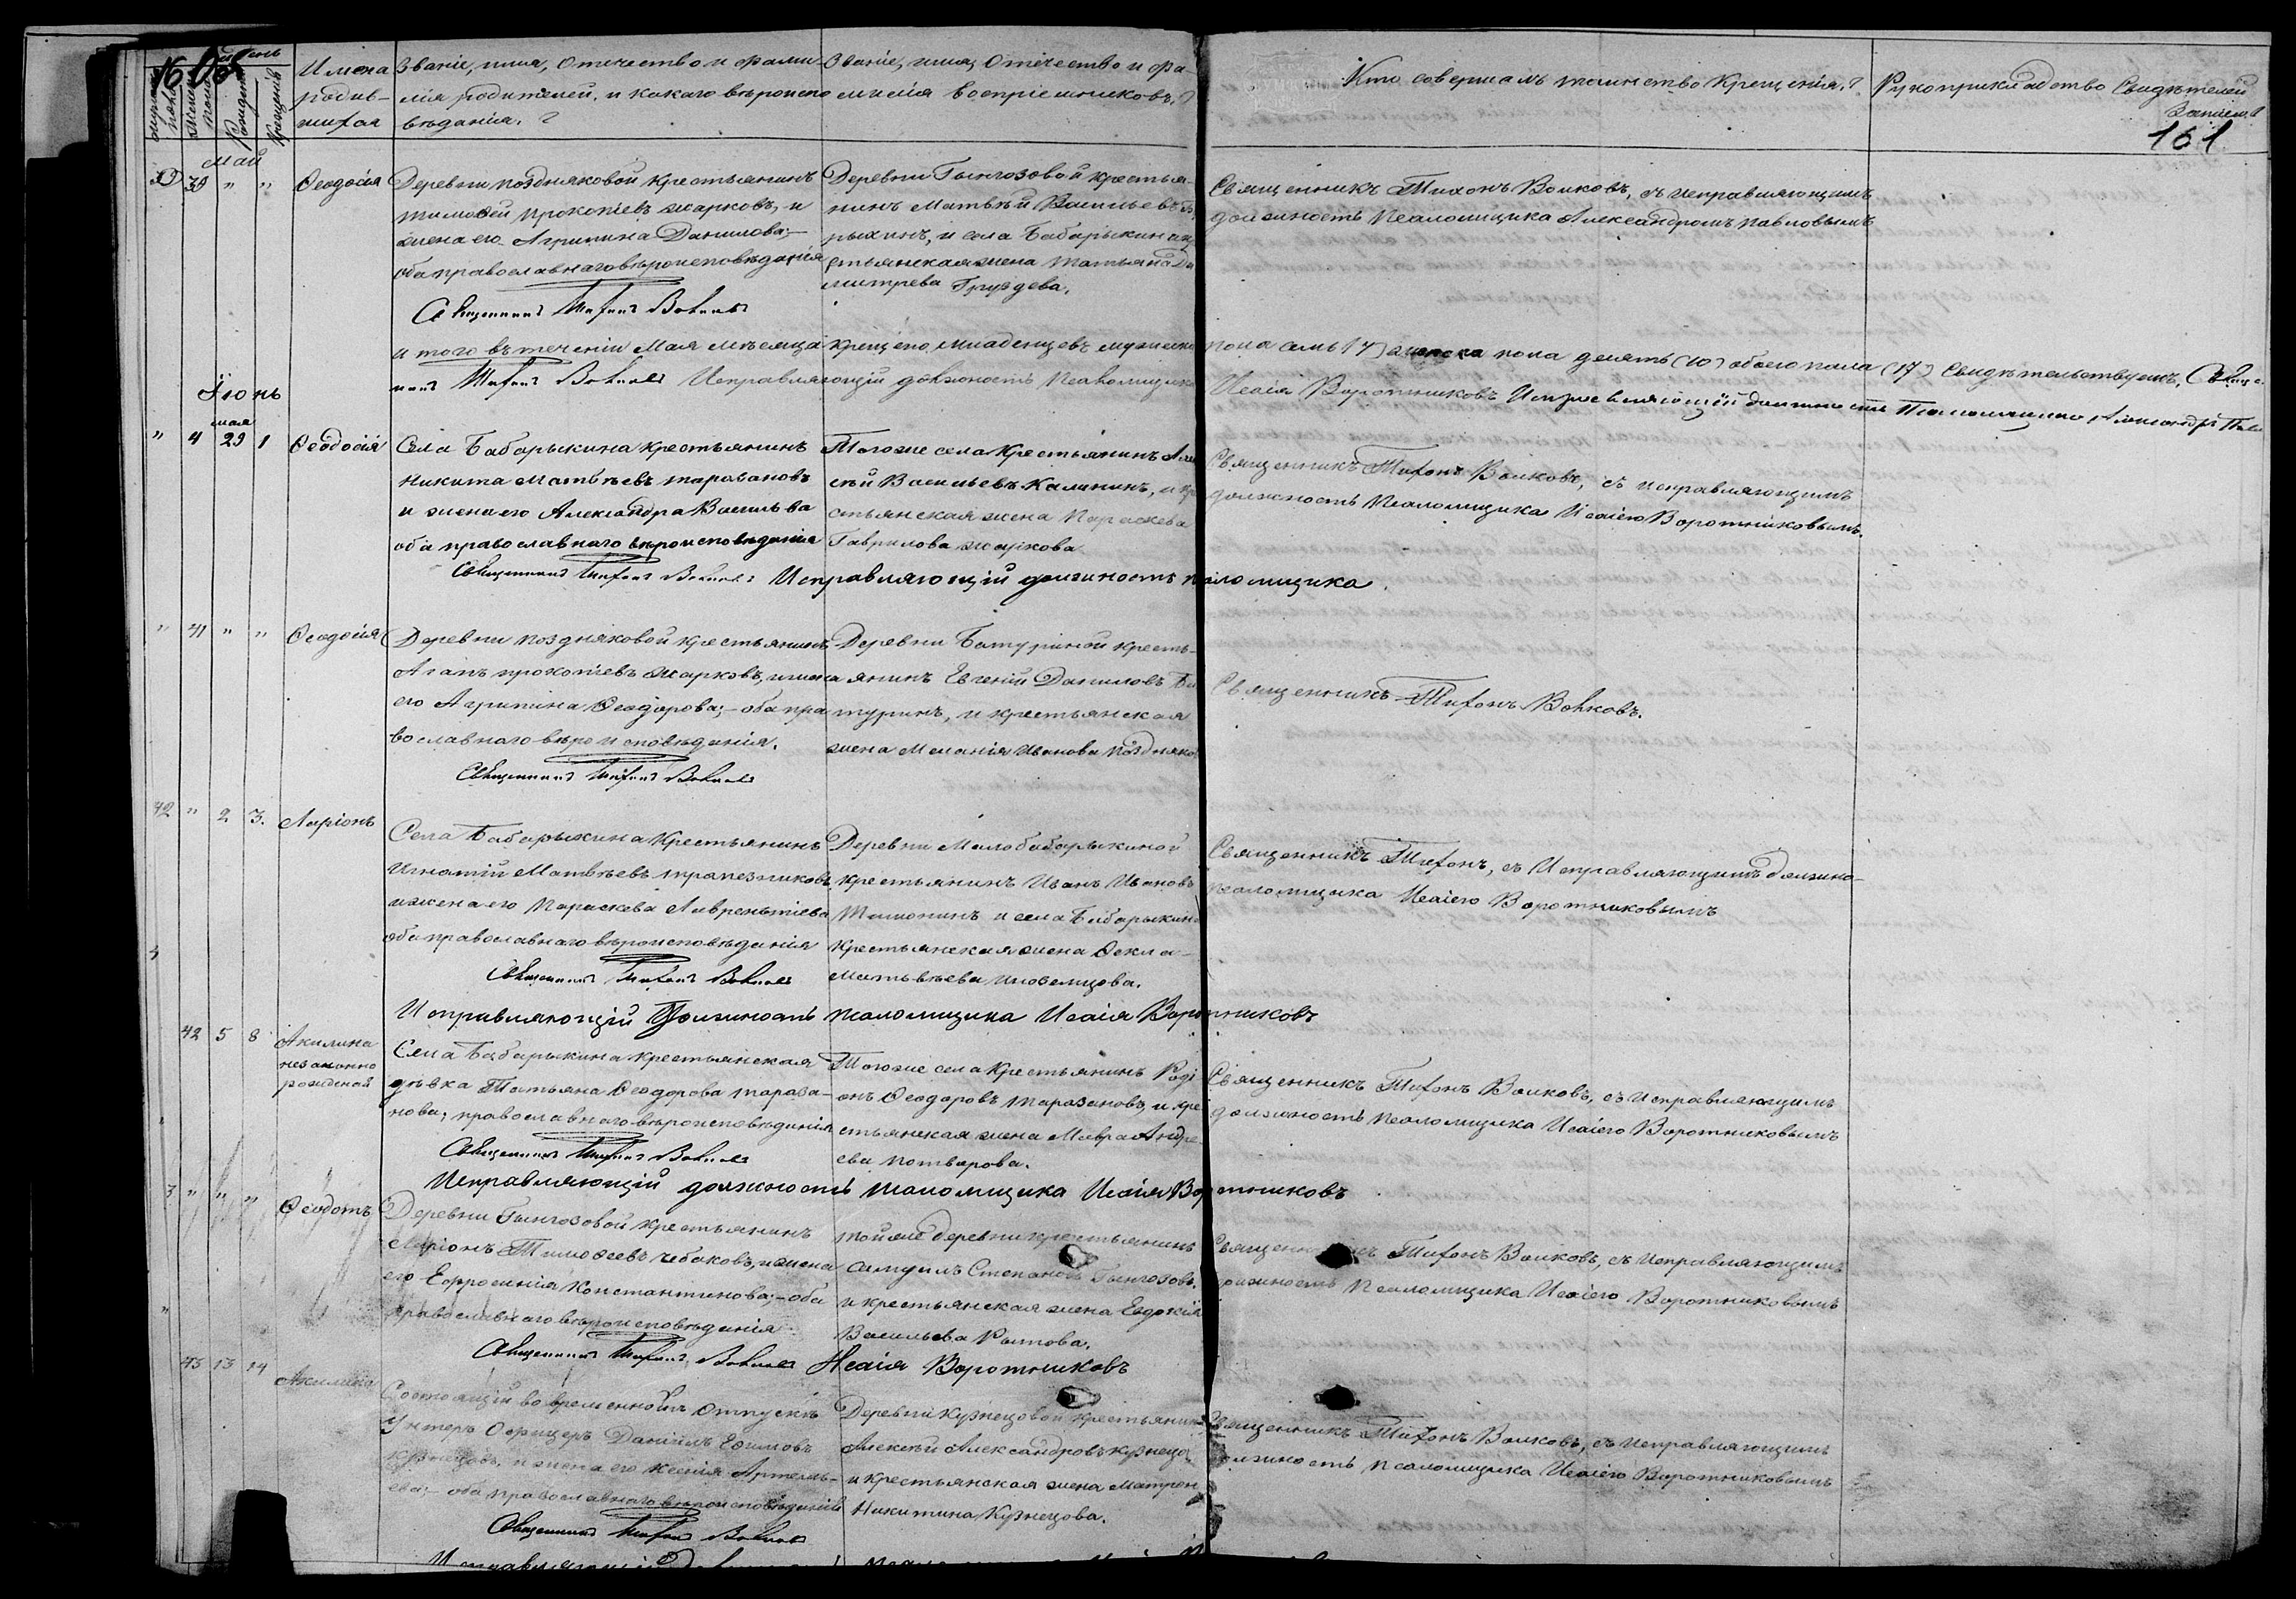 Имена
родив-
шихся
Званіе, имя, отечество и фами-
лія родителей, и какого вѣроиспо
вѣданія. ?
Званіе, имя, отечество и фа-
милія воспріемниковъ. ?
Кто совершалъ таинство крещенія. ?
Рукоприкладство Свидѣтелей
записи. ?
161
Май
39 " "
Ѳеодосія
Деревни Поздняковой крестьянинъ
Тимофей Прокопіевъ Жарковъ, и
жена его Агрипина Данилова;-
оба православнаго вѣроисповѣданія
Священникъ Тихонъ Волковъ
Деревни Гынгозовой крестья-
нинъ Матвѣй Васильевъ
рыхинъ, и села Бабарыкина
стьянская жена Татьяна Ди
митрева Груздева.
Священникъ Тихонъ Волковъ, съ исправляющимъ
должность Псаломщика Александромъ Павловымъ
и того въ теченіи Мая мѣсяца крещено младенцевъ мужеска пола семь (7) женска пола десять (10) обоего пола (17) Свидѣтельствуемъ, Свяще-
никъ Тихонъ Волковъ Исправляющій должность Псаломщика Исаія Воротниковъ Исправляющій должность Псаломщика Александръ Павл
Іюнь
мая
" 4 29 1
Ѳеодосія
Села Бабарыкина крестьянинъ
Никита Матвѣевъ Таразановъ
и жена его Александра Васильва
оба православнаго вѣроисповѣданія
Священникъ Тихонъ Волковъ Исправляющій должность Псаломщика.
Тогоже села крестьянинъ Але
сѣй Васильевъ Калининъ, и кр
стьянская жена Параскева
Гаврилова Жаркова
Священникъ Тихонъ Волковъ, съ исправляющимъ
должность Псаломщика Исаіею Воротниковымъ.
" 41 " "
Ѳеодосія
Деревни Поздняковой крестьянинъ
Агапъ Прокопіевъ Жарковъ, и жена
его Агрипина Ѳеодорова;- оба пра
вославнаго вѣроисповѣданія.
Священникъ Тихонъ Волковъ
Деревни Батуриной кресть-
янинъ Евгеній Даниловъ Ба
туринъ, и крестьянская
жена Меланія Иванова Поздняко
Священникъ Тихонъ Волковъ.
42 " 2 3.
Ларіонъ
Села Бабарыкина крестьянинъ
Игнатій Матвѣевъ Трапезниковъ
и жена его Параскева Лаврентіева
оба православнаго вѣроисповѣданія
Священникъ Тихонъ Волковъ
Деревни Малобабарыкиной
крестьянинъ Иванъ Ивановъ
и села Бабарыкина
крестьянская жена Ѳекла
Матьвѣева Иноземцова.
Священникъ Тихонъ, съ Исправляющимъ должно-
псаломщика Исаіею Воротниковымъ
Исправляющій Должность псаломщика Исаія Воротниковъ
42 5 8
Акилина
незаконно
рожденая
Села Бабарыкина крестьянская
дѣвка Татьяна Ѳеодорова Тараза-
нова; православнаго вѣроисповѣданія
Священникъ Тихонъ Волковъ
Тогоже села крестьянинъ Роді
онъ Ѳеодоровъ Таразановъ, и кре
стьянская жена Мавра Андре
ева Потварова.
Священникъ Тихонъ Волковъ, съ исправляющимъ
должность псаломщика Исаіею Воротниковымъ
Исправляющій должность псаломщика Исаія Воротниковъ
3 " " "
Ѳеодотъ
Деревни Гынгозовой крестьянинъ
Ларіонъ Тимоѳеевъ Чебаковъ, и жена
его Ефросинія Константинова;- оба
православнаго вѣроисповѣданія
Священникъ Тихонъ Волковъ Исаія Воротниковъ
Той же деревни крестьянинъ
Самуилъ Степановъ Гынгозовъ.
и крестьянская жена Евдокія
Васильева Рытова.
Священникъ Тихонъ Волковъ, съ исправляющимъ
должность Псаломщика Исаіею Воротниковымъ
43 13 14
Акилина
Состоящій во временномъ отпускѣ
Унтеръ Офицеръ Даніилъ Ефимовъ
Кузнецовъ, и жена его Ксенія Артемь-
ева;- оба православнаго вѣроисповѣданія
Священникъ Тихонъ Волковъ
Деревни Кузнецовой крестьянинъ
Алексѣй Александровъ Кузнецо
и крестьянская жена Матрен
Никитина Кузнецова.
Священникъ Тихонъ Волковъ, съ исправляющимъ
должность псаломщика Исаіею Воротниковымъ